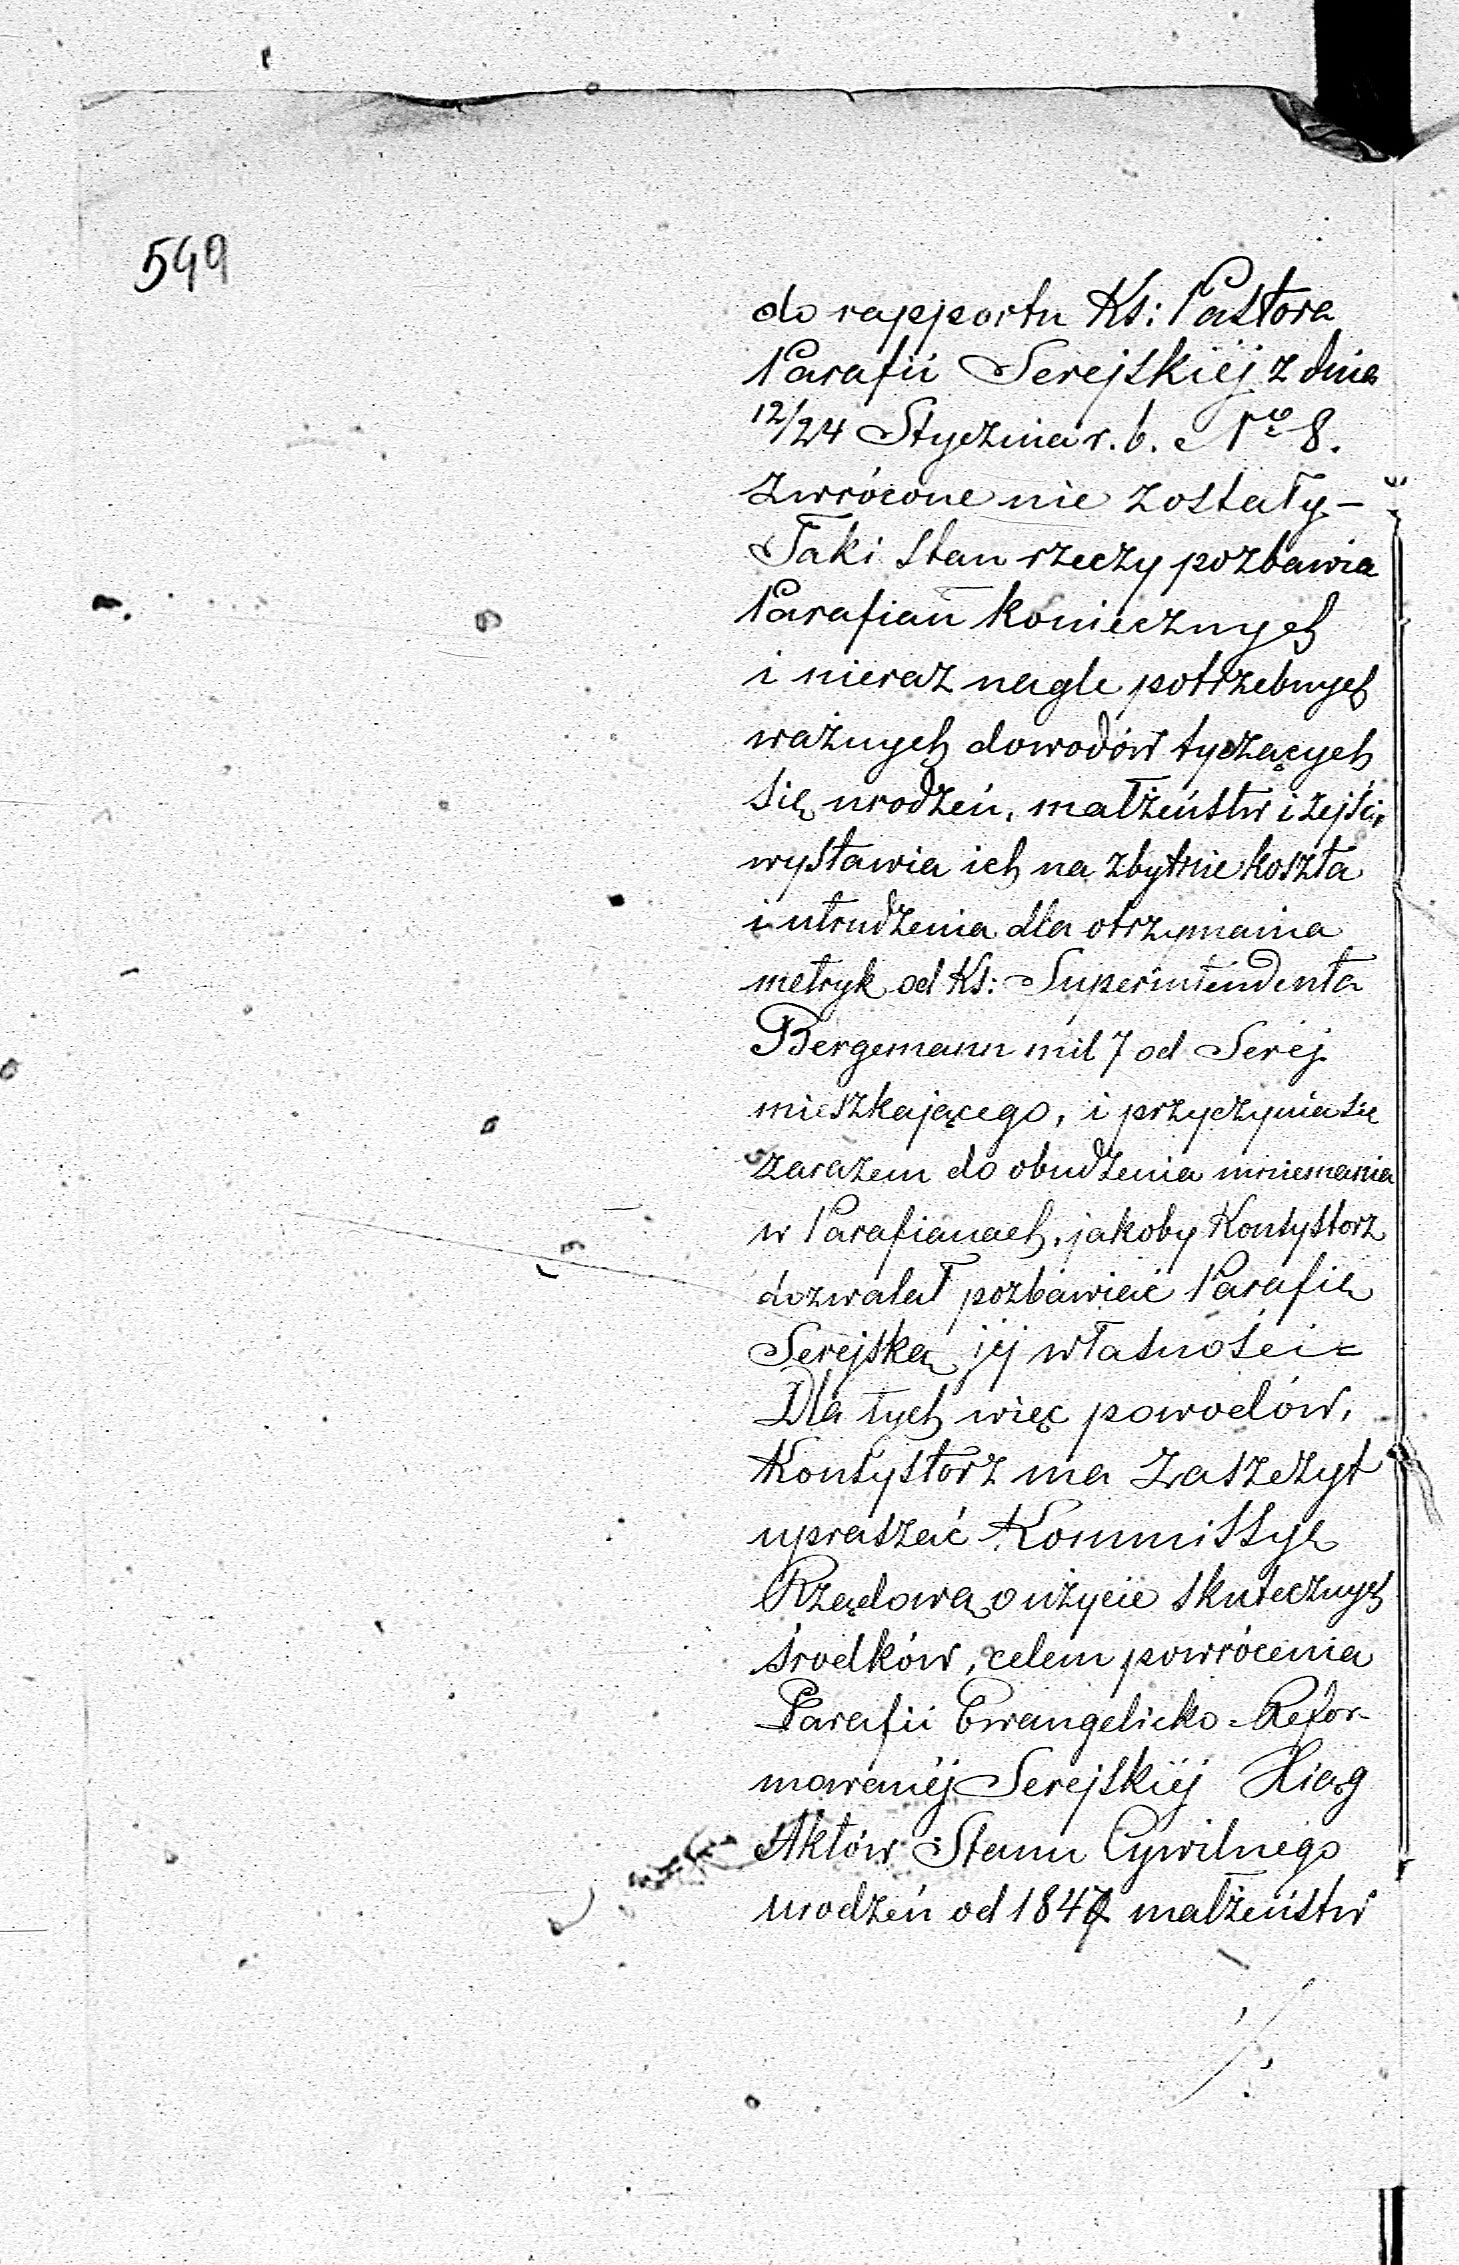 549
do rapportu Ks: Pastora
Parafii Serejskiéj z dnia
12/24 Stycznia r. b. No 8.
zwrócone nie zostały –
Taki stan rzeczy pozbawia
Parafian koniecznych
i nieraz nagle potrzebnych
ważnych dowodów tyczących
się urodzeń, małżeństw i zejść,
wystawia ich na zbytnie koszta
i utrudzenia dla otrzymania
metryk od Ks: Superintendenta
Bergemann mil 7 od Serej
mieszkającego, i przyczynia się
zarazem do obudzenia mniemania
w Parafianach, jakoby Konsystorz
dozwalał pozbawiać Parafię
Serejską jéj własności =
Dla tych więc powodów,
Konsystorz ma zaszczyt
upraszać Kommissyę
Rządową o użycie skutecznych
środków, celem powrócenia
Parafii Ewangelicko = Refor-
mowanéj Serejskiéj Xiąg
Aktów Stanu Cywilnego
urodzeń od 1847 małżeństw